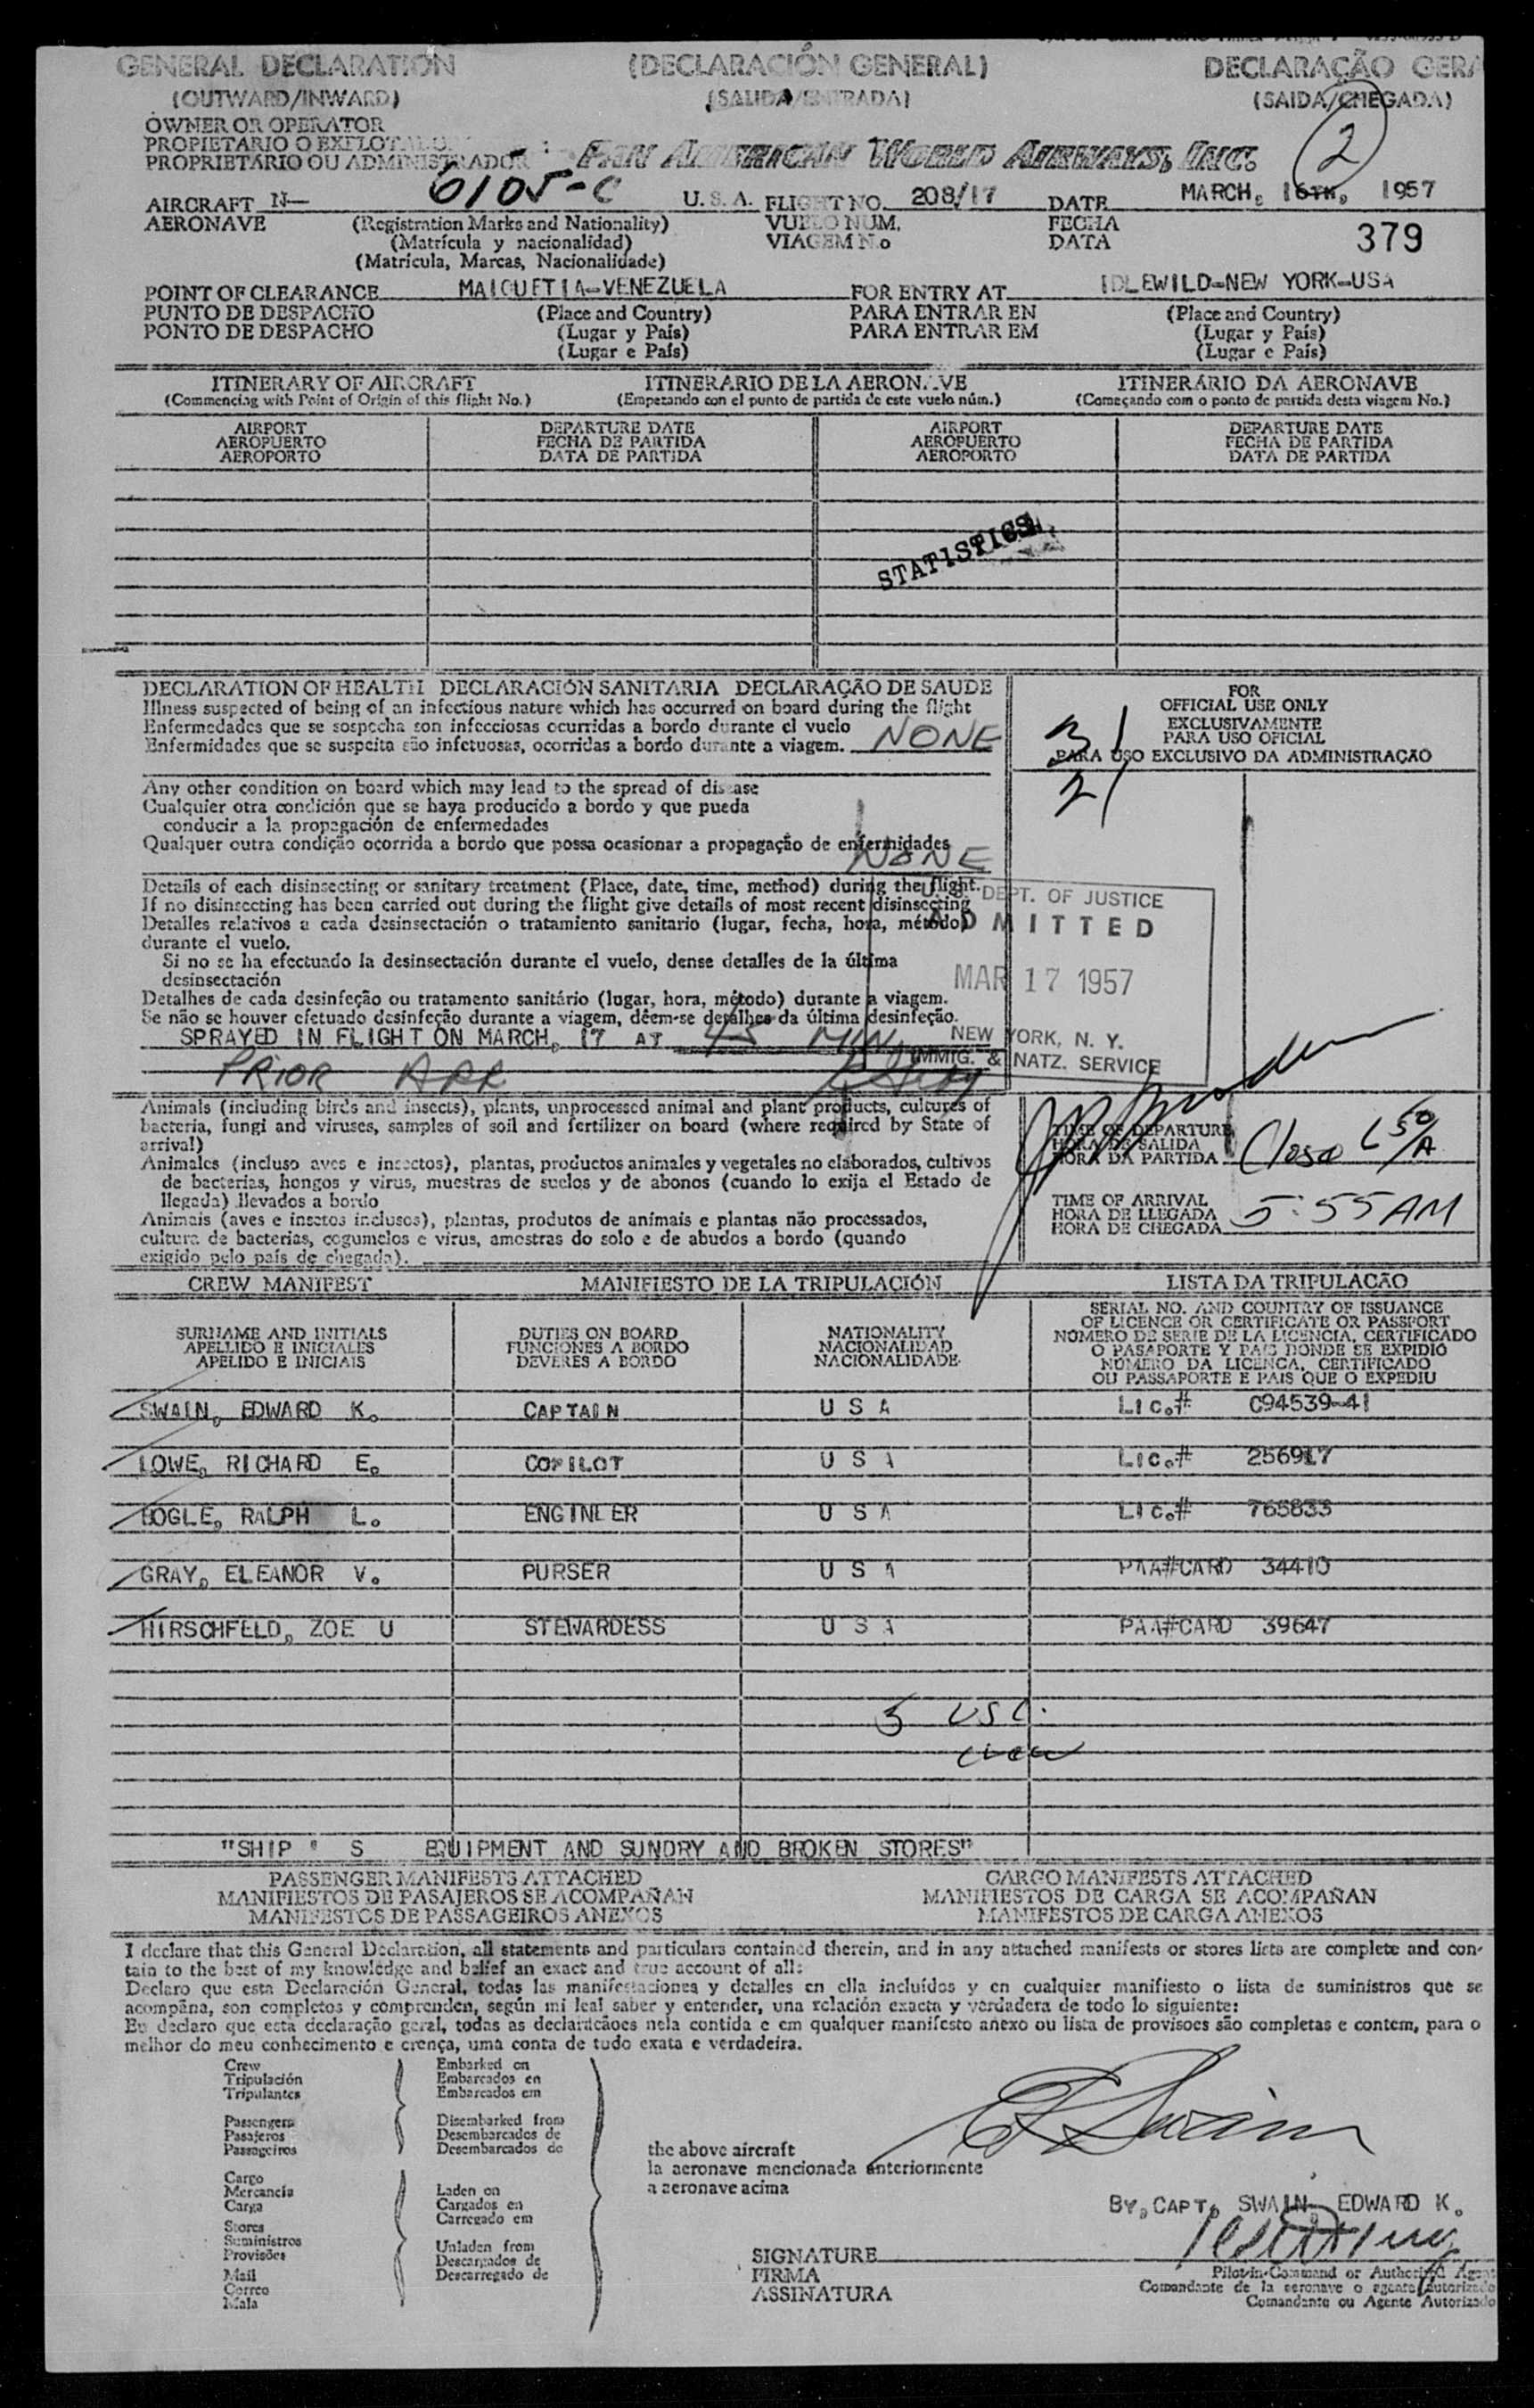 GENERAL DECLARATION (DECLARACIÓN GENERAL) DECLARAÇÃO GERA
(OUTWARD/INWARD) (SALIDA/ENTRADA) (SAIDA/CHEGADA)
OWNER OR OPERATOR
PROPIETARIO O EXPLOTADO
PROPRIETÁRIO OU ADMINISTRADOR : PAN AMERICAN WORLD AIRWAYS, INC. 2
AIRCRAFT N— 6105-C U. S. A. FLIGHT NO. 208/17 DATE MARCH, 16TH, 1957
AERONAVE (Registration Marks and Nationality) VUELO NUM. FECHA
(Matrícula y nacionalidad) VIAGEM N.o DATA 379
(Matrícula, Marcas, Nacionalidade)
POINT OF CLEARANCE MAIQUETIA-VENEZUELA FOR ENTRY AT IDLEWILD-NEW YORK-USA
PUNTO DE DESPACHO (Place and Country) PARA ENTRAR EN (Place and Country)
PONTO DE DESPACHO (Lugar y País) PARA ENTRAR EM (Lugar y País)
(Lugar e País) (Lugar e País)
ITINERARY OF AIRCRAFT ITINERARIO DE LA AERONAVE ITINERÁRIO DA AERONAVE
(Commencing with Point of Origin of this flight No.) (Empezando con el punto de partida de este vuelo núm.) (Começando com o ponto de partida desta viagem No.)
AIRPORT DEPARTURE DATE AIRPORT DEPARTURE DATE
AEROPUERTO FECHA DE PARTIDA AEROPUERTO FECHA DE PARTIDA
AEROPORTO DATA DE PARTIDA AEROPORTO DATA DE PARTIDA
STATISTICS
DECLARATION OF HEALTH DECLARACIÓN SANITARIA DECLARAÇÃO DE SAUDE
Illness suspected of being of an infectious nature which has occurred on board during the flight
Enfermedades que se sospecha son infecciosas ocurridas a bordo durante el vuelo
Enfermidades que se suspeita são infetuosas, ocorridas a bordo durante a viagem. NONE
FOR
OFFICIAL USE ONLY
EXCLUSIVAMENTE
PARA USO OFICIAL
PARA USO EXCLUSIVO DA ADMINISTRAÇÃO
3/
2/
Any other condition on board which may lead to the spread of disease
Cualquier otra condición que se haya producido a bordo y que pueda
conducir a la propagación de enfermedades
Qualquer outra condição ocorrida a bordo que possa ocasionar a propagação de enfermidades
NONE
Details of each disinsecting or sanitary treatment (Place, date, time, method) during the flight.
If no disinsecting has been carried out during the flight give details of most recent disinsecting
Detalles relativos a cada desinsectación o tratamiento sanitario (lugar, fecha, hora, método)
durante el vuelo.
Si no se ha efectuado la desinsectación durante el vuelo, dense detalles de la última
desinsectación
Detalhes de cada desinfeção ou tratamento sanitário (lugar, hora, método) durante a viagem.
Se não se houver efetuado desinfeção durante a viagem, dêem-se detalhes da última desinfeção.
SPRAYED IN FLIGHT ON MARCH, 17 AT 45 MIN
PRIOR ARR
U. S. DEPT. OF JUSTICE
ADMITTED
MAR 17 1957
NEW YORK, N. Y.
IMMIG. & NATZ. SERVICE
Animals (including birds and insects), plants, unprocessed animal and plant products, cultures of
bacteria, fungi and viruses, samples of soil and fertilizer on board (where required by State of
arrival)
Animales (incluso aves e insectos), plantas, productos animales y vegetales no elaborados, cultivos
de bacterias, hongos y virus, muestras de suelos y de abonos (cuando lo exija el Estado de
llegada) llevados a bordo
Animais (aves e insetos inclusos), plantas, produtos de animais e plantas não processados,
cultura de bacterias, cogumelos e virus, amostras do solo e de abudos a bordo (quando
exigido pelo país de chegada).
TIME OF DEPARTURE
HORA DE SALIDA
HORA DA PARTIDA
TIME OF ARRIVAL
HORA DE LLEGADA
HORA DE CHEGADA 5:55 AM
CREW MANIFEST MANIFIESTO DE LA TRIPULACIÓN LISTA DA TRIPULACÃO
SURNAME AND INITIALS DUTIES ON BOARD NATIONALITY
APELLIDO E INICIALES FUNCIONES A BORDO NACIONALIDAD
APELIDO E INICIAIS DEVERES A BORDO NACIONALIDADE
SERIAL NO. AND COUNTRY OF ISSUANCE
OF LICENCE OR CERTIFICATE OR PASSPORT
NÚMERO DE SERIE DE LA LICENCIA, CERTIFICADO
O PASAPORTE Y PAIS DONDE SE EXPIDIÓ
NÚMERO DA LICENCA, CERTIFICADO
OU PASSAPORTE E PAIS QUE O EXPEDIU
SWAIN, EDWARD K. CAPTAIN U S A LIC.# 094539-41
LOWE, RICHARD E. COPILOT U S A LIC.# 256917
BOGLE, RALPH L. ENGINEER U S A LIC.# 765833
GRAY, ELEANOR V. PURSER U S A PAA#CARD 34410
HIRSCHFELD, ZOE U STEWARDESS U S A PAA#CARD 39647
5 USC.
crew
"SHIP ' S EQUIPMENT AND SUNDRY AND BROKEN STORES"
PASSENGER MANIFESTS ATTACHED CARGO MANIFESTS ATTACHED
MANIFIESTOS DE PASAJEROS SE ACOMPAÑAN MANIFIESTOS DE CARGA SE ACOMPAÑAN
MANIFESTOS DE PASSAGEIROS ANEXOS MANIFESTOS DE CARGA ANEXOS
I declare that this General Declaration, all statements and particulars contained therein, and in any attached manifests or stores lists are complete and con-
tain to the best of my knowledge and belief an exact and true account of all:
Declaro que esta Declaración General, todas las manifestaciones y detalles en ella incluídos y en cualquier manifiesto o lista de suministros que se
acompãna, son completos y comprenden, según mi leal saber y entender, una relación exacta y verdadera de todo lo siguiente:
Eu declaro que está declaração geral, todas as declaracãoes nela contida e em qualquer manifesto anexo ou lista de provisoes são completas e contem, para o
melhor do meu conhecimento e crença, uma conta de tudo exata e verdadeira.
Crew Embarked on
Tripulación Embarcados en
Tripulantes Embarcados em
Passengers Disembarked from
Pasajeros Desembarcados de
Passageiros Desembarcados de
the above aircraft
la aeronave mencionada anteriormente
a aeronave acima
Cargo
Mercancía Laden on
Carga Cargados en
Carregado em
Stores
Suministros Unladen from
Provisões Descargados de
Mail Descarregado de
Correo
Mala
E K Swain
BY, CAPT, SWAIN, EDWARD K.
SIGNATURE
FIRMA
ASSINATURA
Pilot-in-Command or Authorized Agent
Comandante de la aeronave o agente autorizado
Comandante ou Agente Autorizado